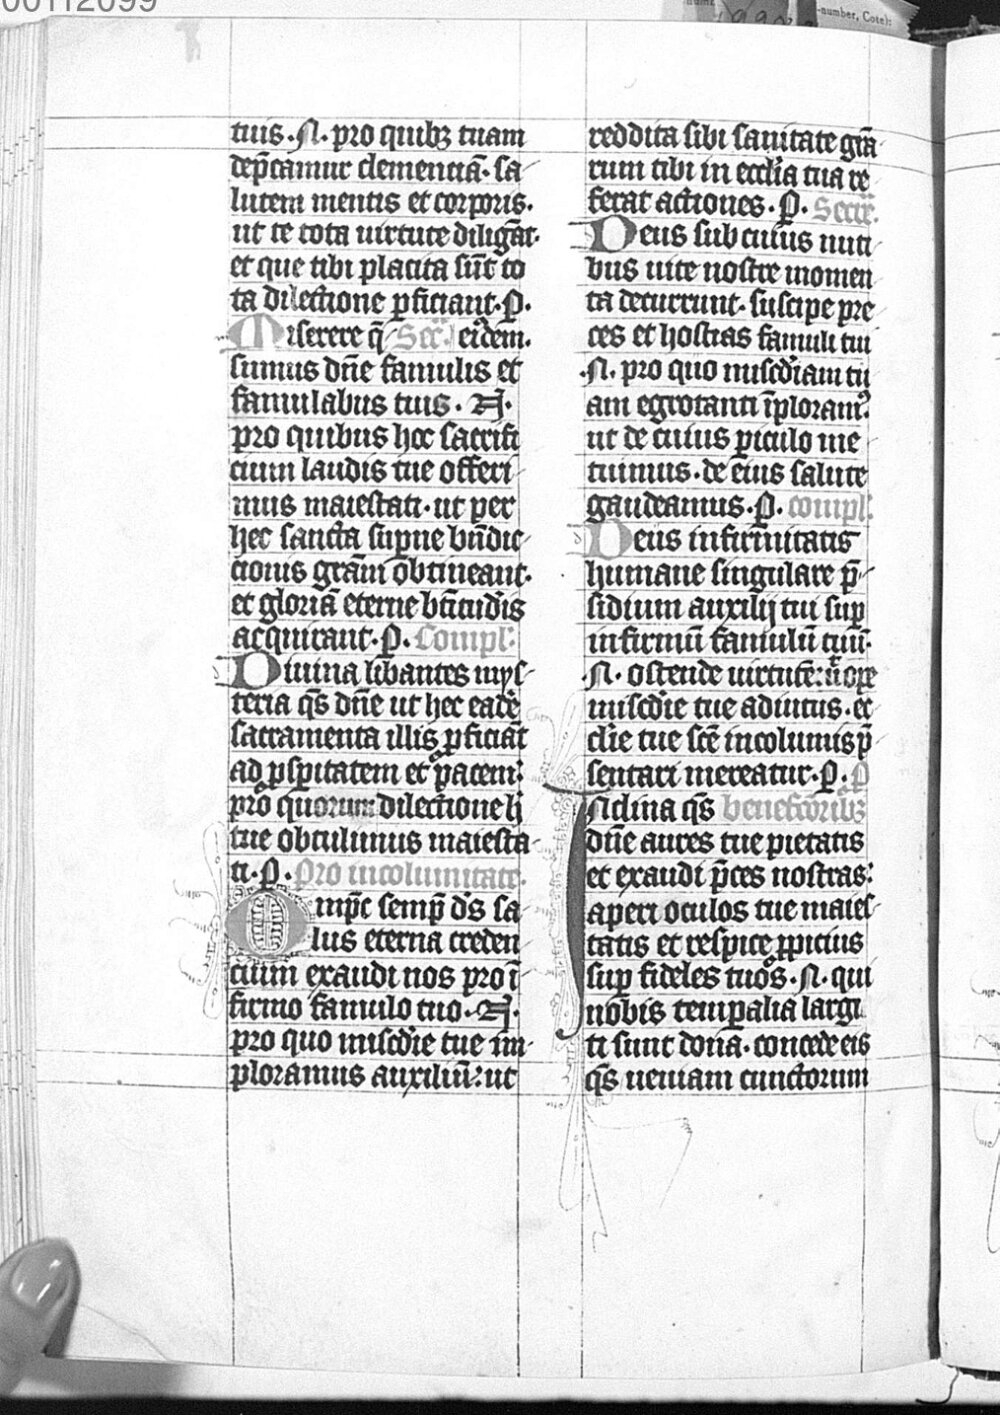 00112099
-number, Cote):
tuis · N · pro quibꝫ tuam
dep̄camur clemenciā · sa
lutem mentis et corporis ·
ut te tota uirtute diligāt ·
et que tibi placita sūt to
ta dilectione ꝑficiant · P ·
Miserere q̄ Secr̄ · eiusdem ·
sumus dn̄e famulis et
famulabus tuis · N ·
pro quibus hoc sacrifi
cium laudis tue offeri
mus maiestati · ut per
hec sancta suꝑne bn̄dic
cionis grām obtineant ·
et gloriā eterne btitudīs
acquirant · P · Compl ·
Diuina libantes mys
teria qs̄ dn̄e ut hec eadē
sacramenta illis ꝓficiāt
ad ꝓsperitatem et pacem
pro quorum dilectione h̄
tue obtulimus maiesta
ti · P · Pro incolumitate
Omp̄c semꝑ ds̄ sa
lus eterna creden
cium exaudi nos pro ī
firmo famulo tuo · N ·
pro quo miscd̄ie tue im
ploramus auxiliū : ut
reddita sibi sanitate grā
rum tibi in ecclīa tua re
ferat actiones · P · Secr̄ ·
Deus sub cuius nuti
bus uite nostre momen
ta decurrunt · suscipe pre
ces et hostias famuli tui
· N · pro quo miscd̄iam tu
am egrotanti īploramꝰ
ut de cuius ꝑiculo me
tuimus · de eius salute
gaudeamus · P · compl ·
Deus infirmitatis
humane singulare p̄
sidium auxilij tui suꝑ
infirmū famulū tuū ·
· N · ostende uirtutē : ut ope
miscd̄ie tue adiutus · ec
clīe tue scē incolumis p̄
sentari mereatur · P · P
Inclina qs̄ benefc̄oribꝫ
dn̄e aures tue pietatis
et exaudi p̄ces nostras :
aperi oculos tue maies
tatis et respice ꝓpicius
suꝑ fideles tuos · N · qui
nobis temꝑalia largi
ti sunt dona · concede eis
qs̄ ueniam cunctorum